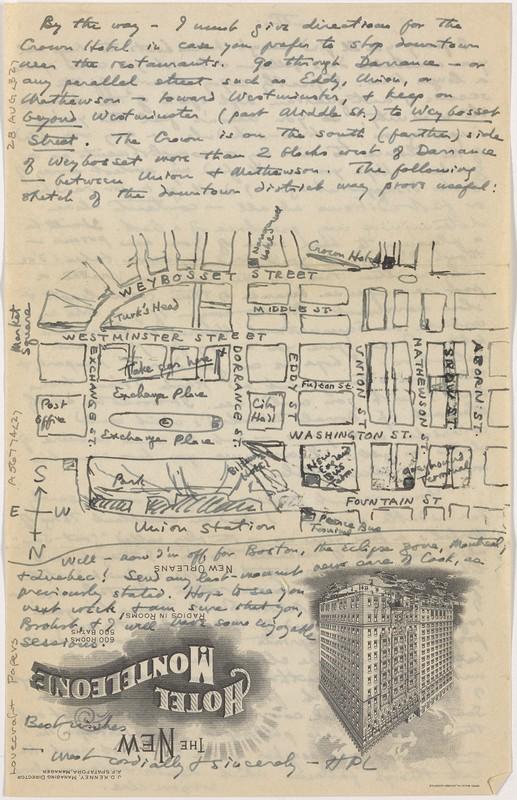 By the way — I must give directions for the
Crown Hotel in case you prefer to stop downtown
near the restaurants. Go through Dorrance — or
any parallel street such as Eddy, Union, or
Mathewson — toward Westminster, & keep on
beyond Westminster (past Middle St.) to Weybosset
Street. The Crown is on the south (farther) side
of Weybosset more than 2 blocks west of Dorrance
— between Union & Mathewson. The following
sketch of the downtown district may prove useful:
28 AUG. 1932
Crown Hotel
WEYBOSSET STREET
Turk's Head
MIDDLE ST.
Market Square
WESTMINSTER STREET
EXCHANGE ST.
Take car here
DORRANCE ST.
EDDY ST
UNION ST.
MATHEWSON ST.
SNOW ST.
ABORN ST.
Fulton St.
Exchange Place
Post Office
City Hall
Exchange Place
WASHINGTON ST.
A 36774427
Park
New England Bus Term.
Greyhound Terminal
S
E W
N
FOUNTAIN ST
Union Station
Terminal Bus
Well — now I'm off for Boston, the eclipse zone, Montreal,
& Quebec! Send any last-moment news care of Cook, as
previously stated. Hope to see you
next week, & am sure that you,
& I will have some enjoyable
sessions.
Best wishes
— most cordially & sincerely — HPL
Lovecraft Papers
J. D. KENNEY, MANAGING DIRECTOR
A. F. SPATAFORA, MANAGER
THE NEW
HOTEL
MONTELEONE
600 ROOMS
500 BATHS
RADIOS IN ROOMS
NEW ORLEANS